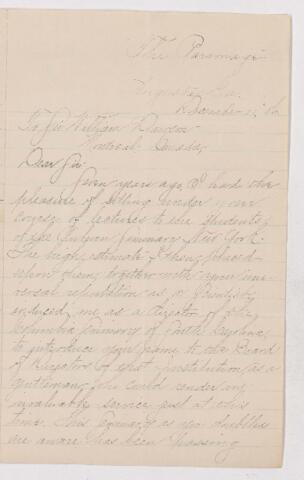 The Parsonage
Augusta, Ga.
December 11,
To Sir William Dawson
Montreal Canada,
Dear Sir:
Seven years ago, I had the
pleasure of sitting under your
course of lectures to the students
of the Union Seminary New York.
The high estimate I then placed
upon them, together with your
reputation as a Scientist,
induced me as a Director of the
Columbia Seminary of South
to introduce your name to the Board
of Directors of that institution as a
gentleman who could render
invaluable service just at this
time. This as you doubtless
are aware has been passing